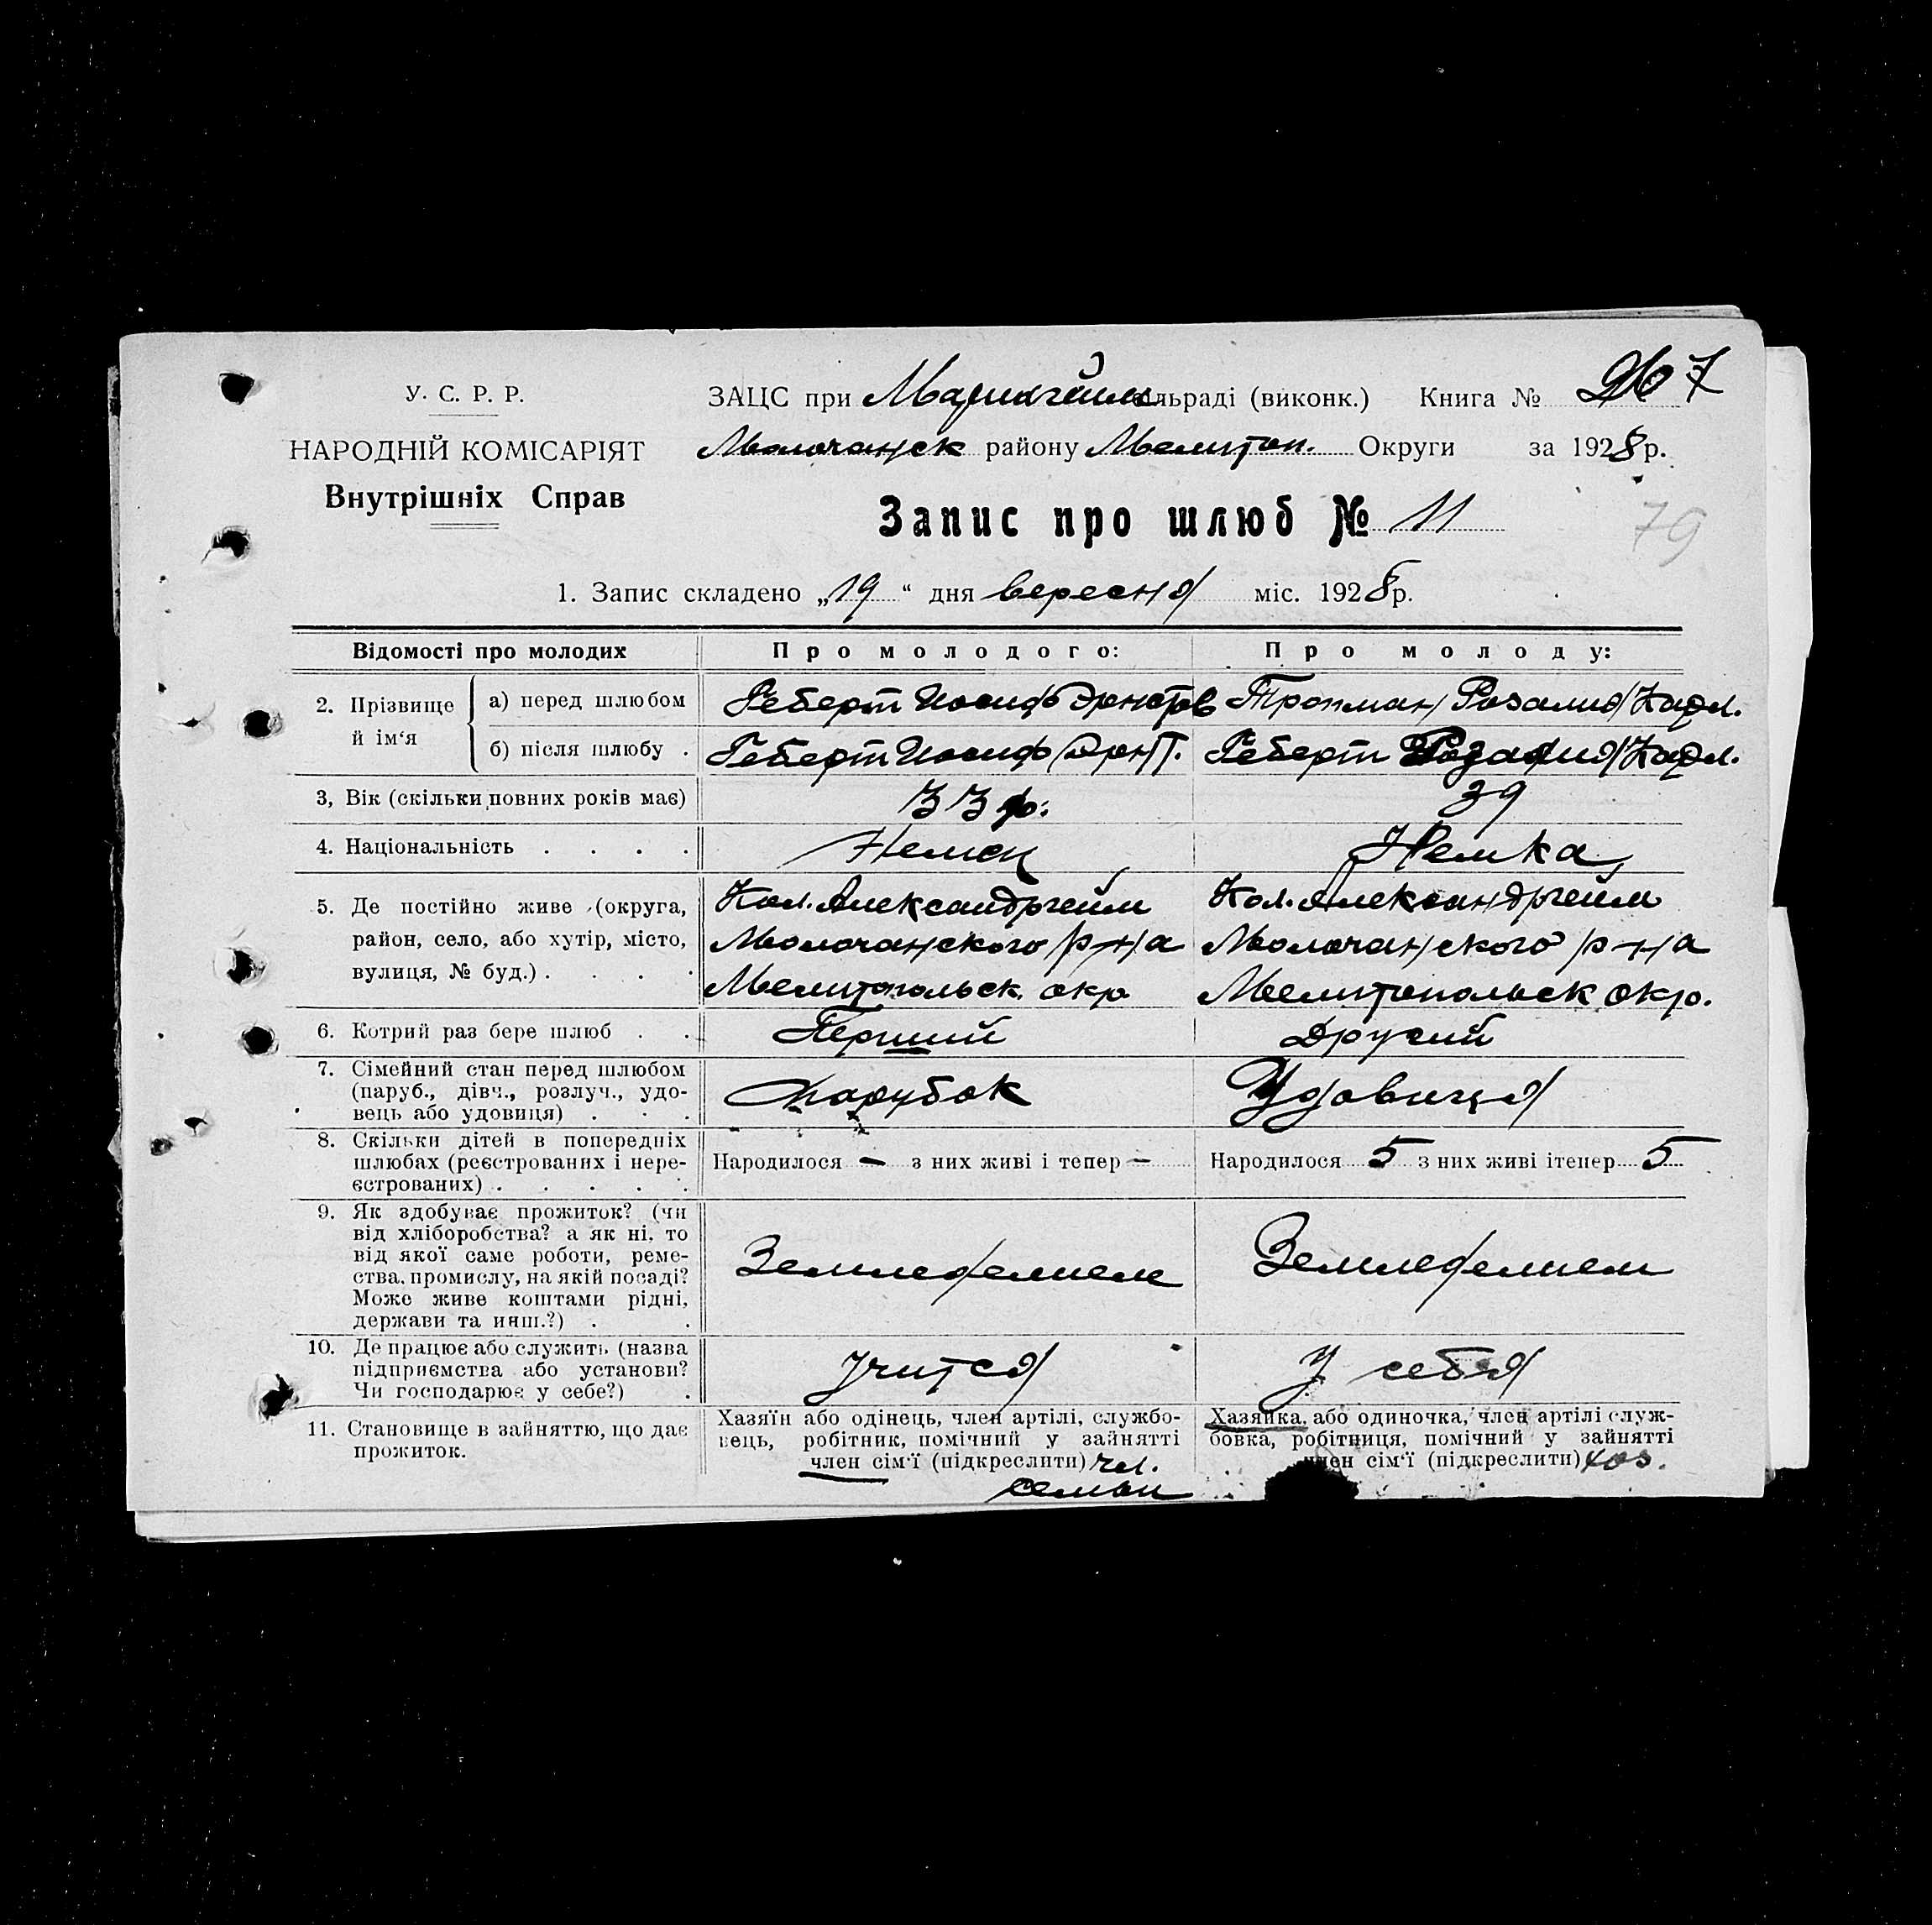 У. С. Р. Р.
НАРОДНІЙ КОМІСАРІЯТ
Внутрішніх Справ
ЗАЦС при Мариагейм сільраді (виконк.) Книга № 7
Молочанск району Мелитоп. Округи за 1928 р.
Запис про шлюб № 11
79
1. Запис складено „19“ дня вересня міс. 1928 р.
Відомості про молодих
Про молодого:
Про молоду:
2. Прізвище й ім‘я
а) перед шлюбом
Геберт Иосиф
Тропман Розалия Карл.
б) після шлюбу .
Геберт Иосиф
Геберт Розалия Карл.
3, Вік (скільки повних років має)
33 р.
39
4. Національність . . . .
Немец
Немка
5. Де постійно живе (округа,
район, село, або хутір, місто,
вулиця, № буд.) . . . .
Кол. Александргейм
Молочанского р-на
Мелитопольск. окр
Кол. Александргейм
Молочанского р-на
Мелитопольск окр.
6. Котрий раз бере шлюб . .
Перший
Другий
7. Сімейний стан перед шлюбом
(паруб., дівч., розлуч., удо-
вець або удовиця) . . .
Парубок
Удовиця
8. Скільки дітей в попередніх
шлюбах (реєстрованих і нере-
єстрованих) . . . . .
Народилося — з них живі і тепер —
Народилося 5 з них живі ітепер 5
9. Як здобуває прожиток? (чи
від хліборобства? а як ні, то
від якої саме роботи, реме-
ства, промислу, на якій посаді?
Може живе коштами рідні,
держави та инш.?) . .
Земледелием
Земледелием
10. Де працює або служить (назва
підприємства або установи?
Чи господарює у себе?) .
Учится
У себя
11. Становище в зайняттю, що дає
прожиток.
Хазяїн або одінець, член артілі, службо-
вець, робітник, помічний у зайнятті
член сім‘ї (підкреслити) чл.
семьи
Хазяйка, або одиночка, член артілі служ-
бовка, робітниця, помічний у зайнятті
член сім‘ї (підкреслити) хоз.